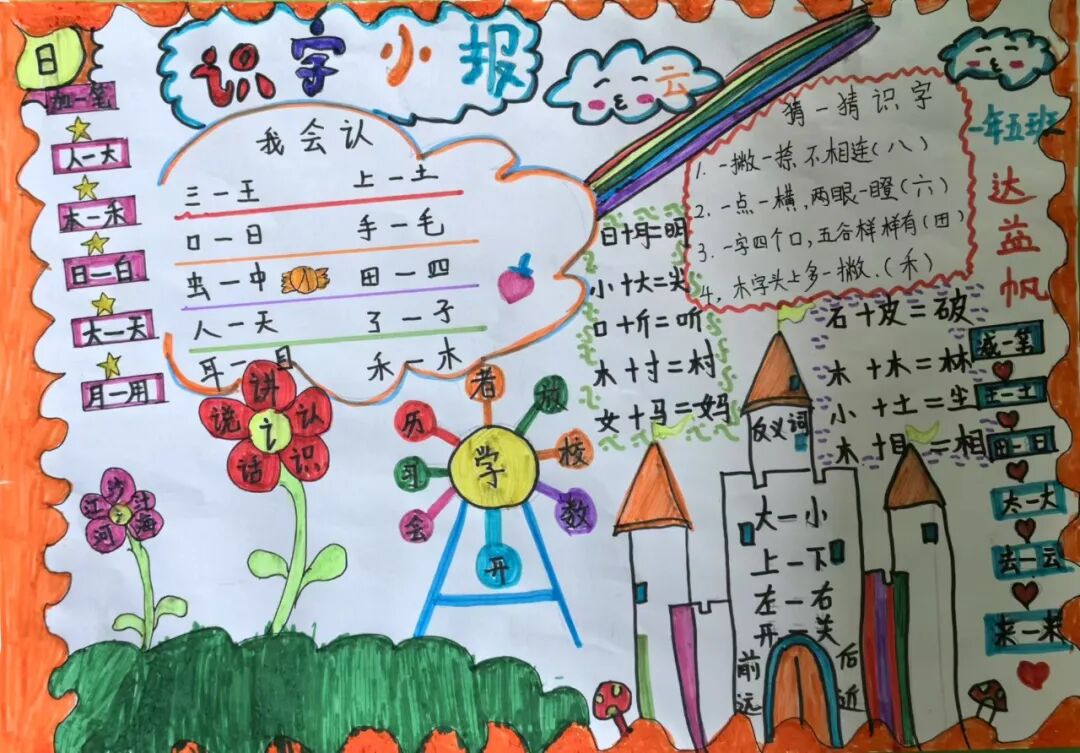 识字小报
日
加一笔
人一大
本一禾
日一白
大一天
月一用
我会认
三一王 上一土
口一日 手一毛
虫一中 田一四
人一天 了一子
耳一目 禾一木
云
猜一猜识字
1. 一撇一捺不相连(八)
2. 一点一横,两眼一瞪(六)
3. 一字四个口,五谷样样有(田)
4. 木字头上多一撇.(禾)
一年五班
达益帆
小+大=尖
口+斤=听
木+寸=村
女+马=妈
石+皮=破
木+木=林
小+土=尘
木+目=相
减一笔
王一土
田一日
太一大
去一云
来一来
讲
认
识
话
说
讠
沙
江
河
海
氵
学
者
放
校
教
开
会
习
历
反义词
大一小
上一下
左一右
开一关
前 后
远 近